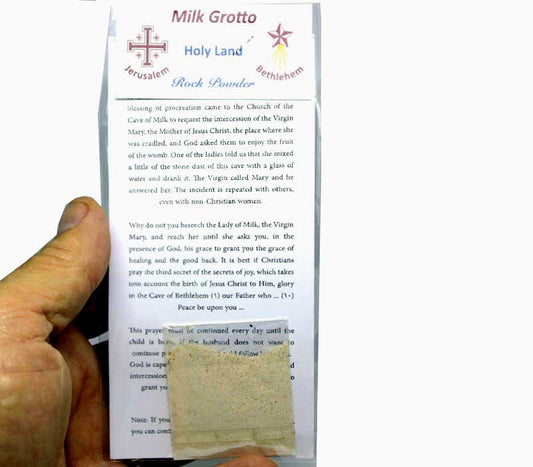 Milk Grotto
Holy Land
Jerusalem
Bethlehem
Rock Powder
blessing of procreation came to the Church of the
Cave of Milk to request the intercession of the Virgin
Mary, the Mother of Jesus Christ, the place where she
was cradled, and God asked them to enjoy the fruit
of the womb. One of the ladies told us that she mixed
a little of the stone dust of this cave with a glass of
water and drank it. The Virgin called Mary and he
answered her. The incident is repeated with others,
even with non-Christian women.
Why do not you beseech the Lady of Milk, the Virgin
Mary, and reach her until she asks you, in the
presence of God, his grace to grant you the grace of
healing and the good back. It is best if Christians
pray the third secret of the secrets of joy, which takes
into account the birth of Jesus Christ to Him, glory
in the Cave of Bethlehem (١) our Father who ... (١٠)
Peace be upon you ...
This prayer must be continued every day until the
child is born, if the husband does not want to
continue
God is
intercession
grant
Note: If you
you can